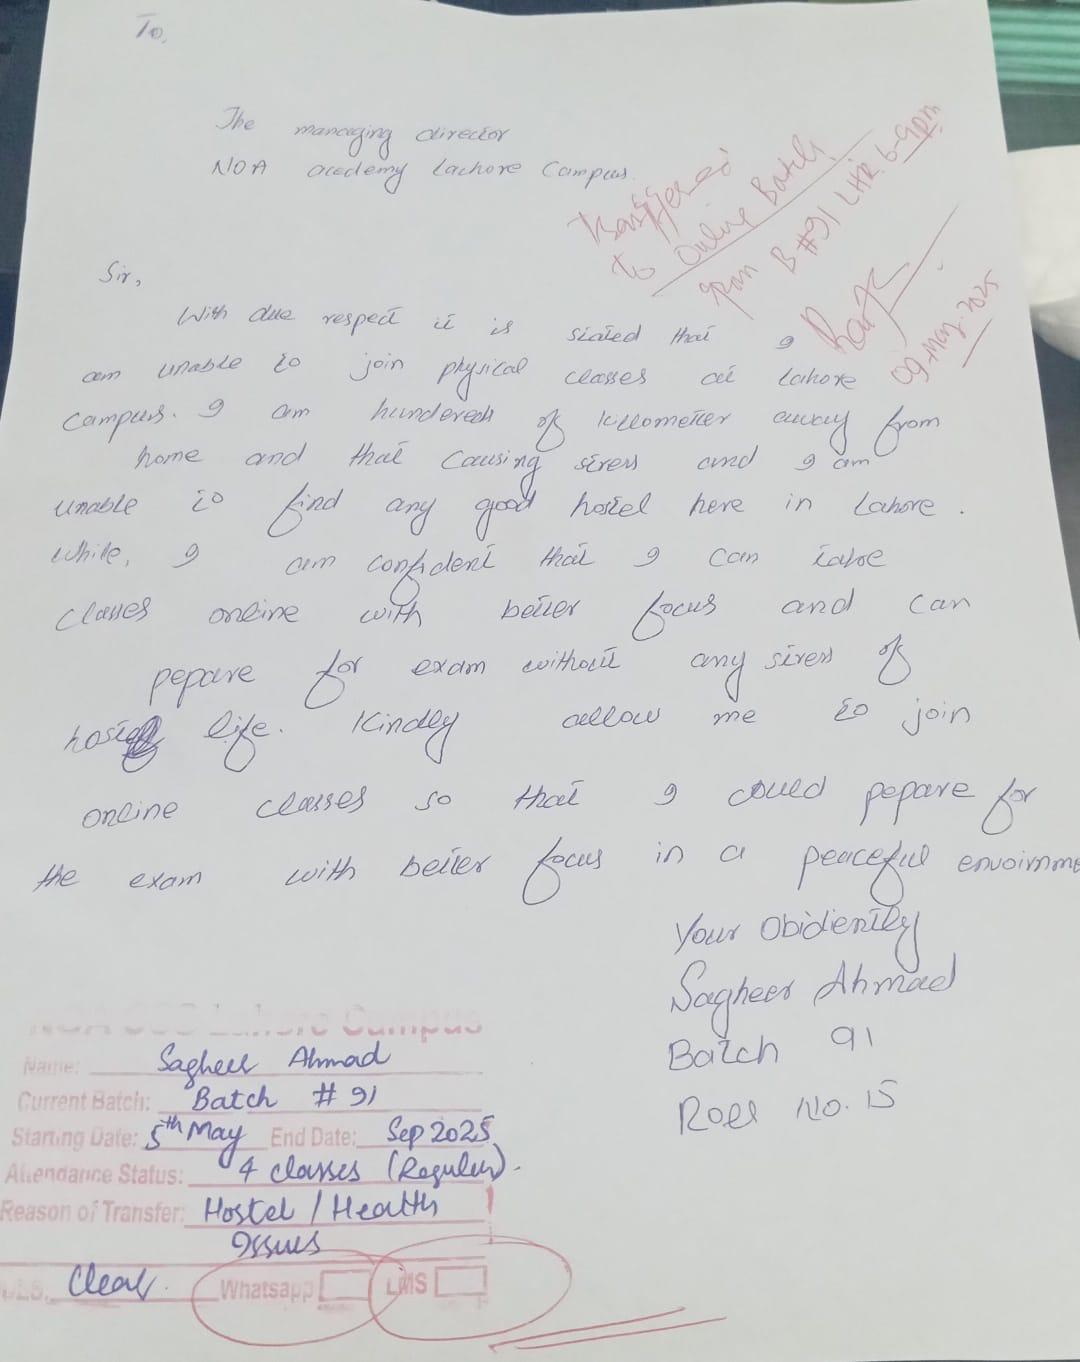 To,
The managing director
NOA acedemy Lachore Campus.
Transffered
to Online Batch
from B#91 LHR. 6-9pm
09-May-2025
Sir,
With due respect it is stated that I
am unable to join physical classes at Lahore
Campus. I am hundereds of killometer away from
home and that causing stress and I am
unable to find any good hostel here in Lahore.
While, I am confident that I can take
classes online with better focus and can
pepare for exam without any stress of
hostel life. Kindly allow me to join
online classes so that I could pepare for
the exam with better focus in a peaceful envoirnme
Your Obidiently
Sagheer Ahmad
Batch 91
Roll No. 15
NOA CSS Lahore Campus
Name: Sagheer Ahmad
Current Batch: Batch # 91
Starting Date: 5th May End Date: Sep 2025
Attendance Status: 4 classes (Regular).
Reason of Transfer: Hostel / Health
Issues
Clear. Whatsapp LMS